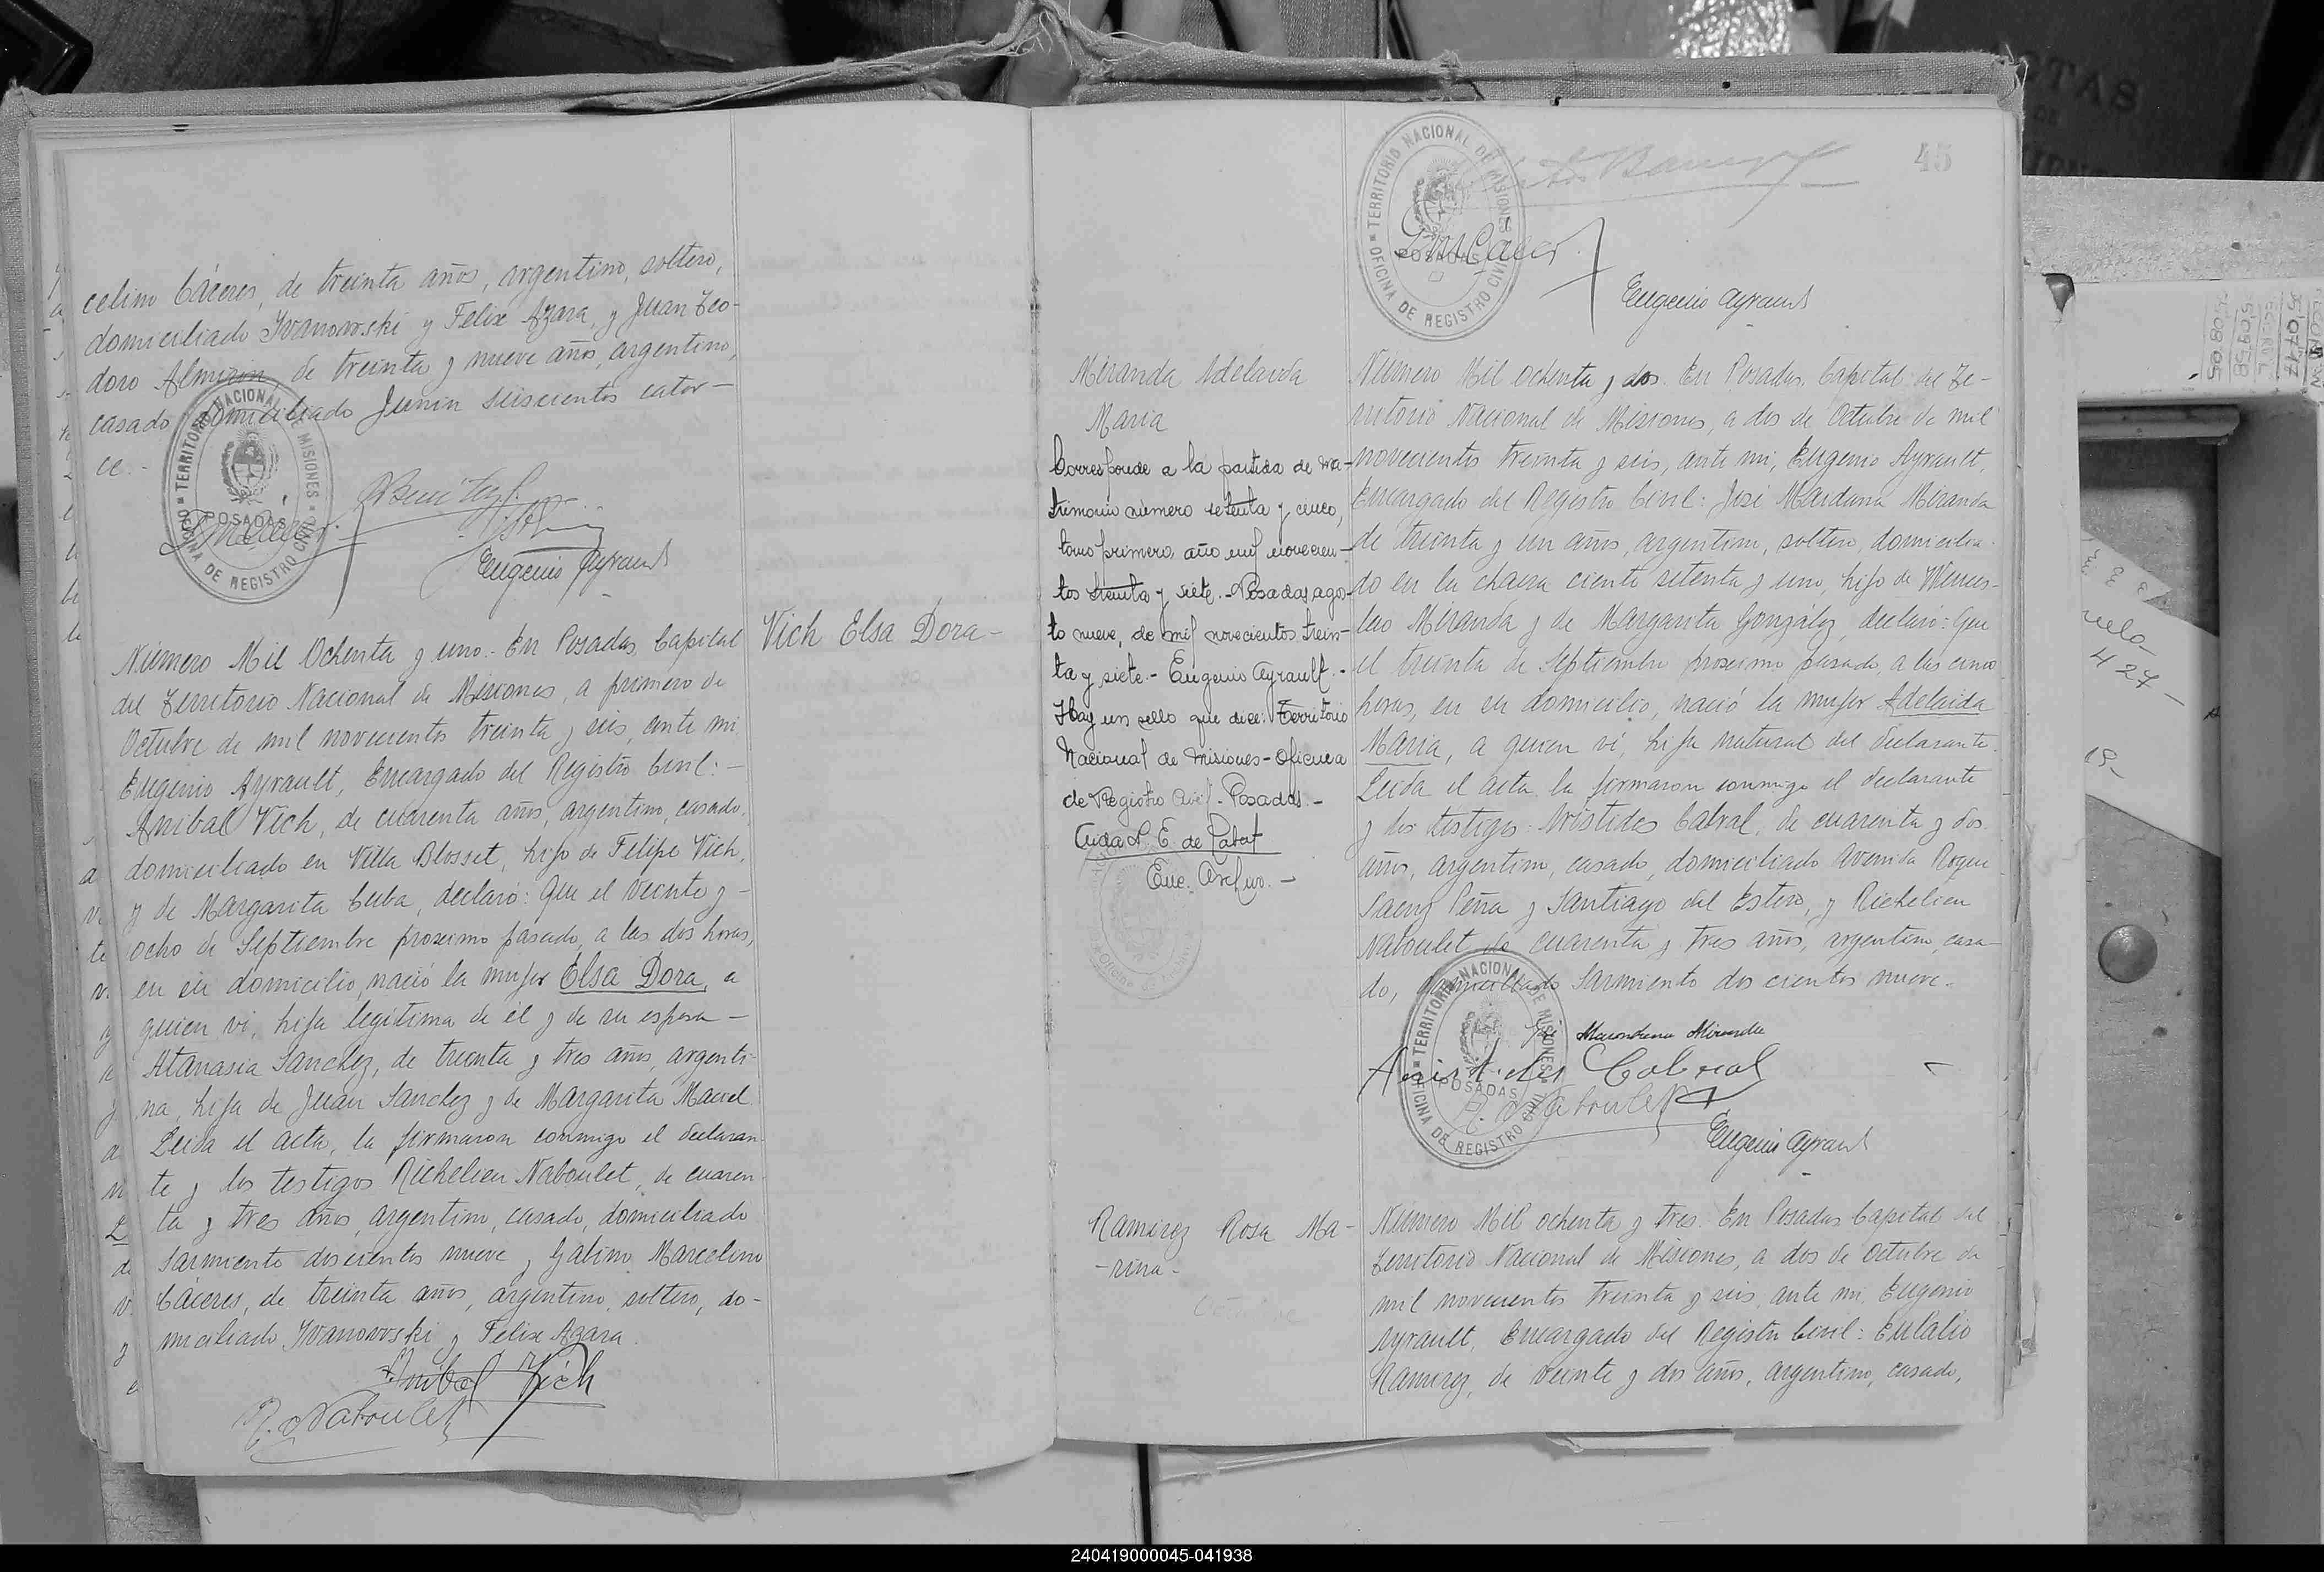 celino Cáceres, de treinta años, argentino, soltero,
domiciliado Ivanowski y Felix Azara, y Juan Teo-
doro Almiron, de treinta y nueve años, argentino,
casado domiciliado Junin seiscientos cator-
ce.-
TERRITORIO NACIONAL DE MISIONES
POSADAS
OFICINA DE REGISTRO CIVIL
Eugenio Ayrault
Número Mil Ochenta y uno.- En Posadas, Capital
del Territorio Nacional de Misiones, a primero de
Octubre de mil novecientos treinta y seis, ante mi,
Eugenio Ayrault, Encargado del Registro Civil:-
Anibal Vich, de cuarenta años, argentino, casado,
domiciliado en Villa Blosset, hijo de Felipe Vich,
y de Margarita Cuba, declaró: Que el veinte y-
ocho de Septiembre proximo pasado, a las dos horas,
en su domicilio, nació la mujer Elsa Dora, a
quien vi, hija legitima de él y de su esposa-
Atanasia Sanchez, de treinta y tres años, argenti-
na, hija de Juan Sanchez y de Margarita Maciel.
Leida el acta, la firmaron conmigo el declaran-
te y los testigos Richelieu Naboulet, de cuaren-
ta y tres años, argentino, casado, domiciliado
Sarmiento doscientos nueve y Galino Marcelino
Cáceres, de treinta años, argentino, soltero, do-
miciliado Ivanowski y Felix Azara.
Anibal Vich
R. Naboulet
Vich Elsa Dora-
45
TERRITORIO NACIONAL DE MISIONES
POSADAS
OFICINA DE REGISTRO CIVIL
Eugenio Ayrault
Miranda Adelaida
Maria
Corresponde a la partida de ma-
trimonio número setenta y cinco,
tomo primero, año mil novecien-
tos treinta y siete.- Posadas, agos-
to nueve, de mil novecientos trein-
ta y siete.- Eugenio Ayrault.-
Hay un sello que dice: Territorio
Nacional de Misiones-Oficina
de Registro Civil-Posadas.-
Enc. Archivo.-
Número Mil Ochenta y dos. En Posadas, Capital del Te-
rritorio Nacional de Misiones, a dos de Octubre de mil
novecientos treinta y seis, ante mi, Eugenio Ayrault,
Encargado del Registro Civil: José Marduna Miranda
de treinta y un años, argentino, soltero, domicilia-
do en la chacra ciento setenta y uno, hijo de Wences-
lao Miranda y de Margarita González, declaró: Que
el treinta de Septiembre proximo pasado, a las cinco
horas, en su domicilio, nació la mujer Adelaida
Maria, a quien vi, hija natural del declarante.
Leida el acta la firmaron conmigo el declarante
y los testigos: Aristides Cabral, de cuarenta y dos
años, argentino, casado, domiciliado Avenida Roque
Saenz Peña y Santiago del Estero, y Richelieu
Naboulet de cuarenta y tres años, argentino, casa-
do, domiciliado Sarmiento dos cientos nueve.-
TERRITORIO NACIONAL DE MISIONES
POSADAS
OFICINA DE REGISTRO CIVIL
Miranda
Aristides Cabral
R. Naboulet
Eugenio Ayrault
Ramirez Rosa Ma-
-rina-
Número Mil Ochenta y tres. En Posadas Capital del
Territorio Nacional de Misiones, a dos de Octubre de
mil novecientos treinta y seis, ante mi, Eugenio
Ayrault, Encargado del Registro Civil: Eulalio
Ramirez, de veinte y dos años, argentino, casado,
427-
19-
240419000045-041938